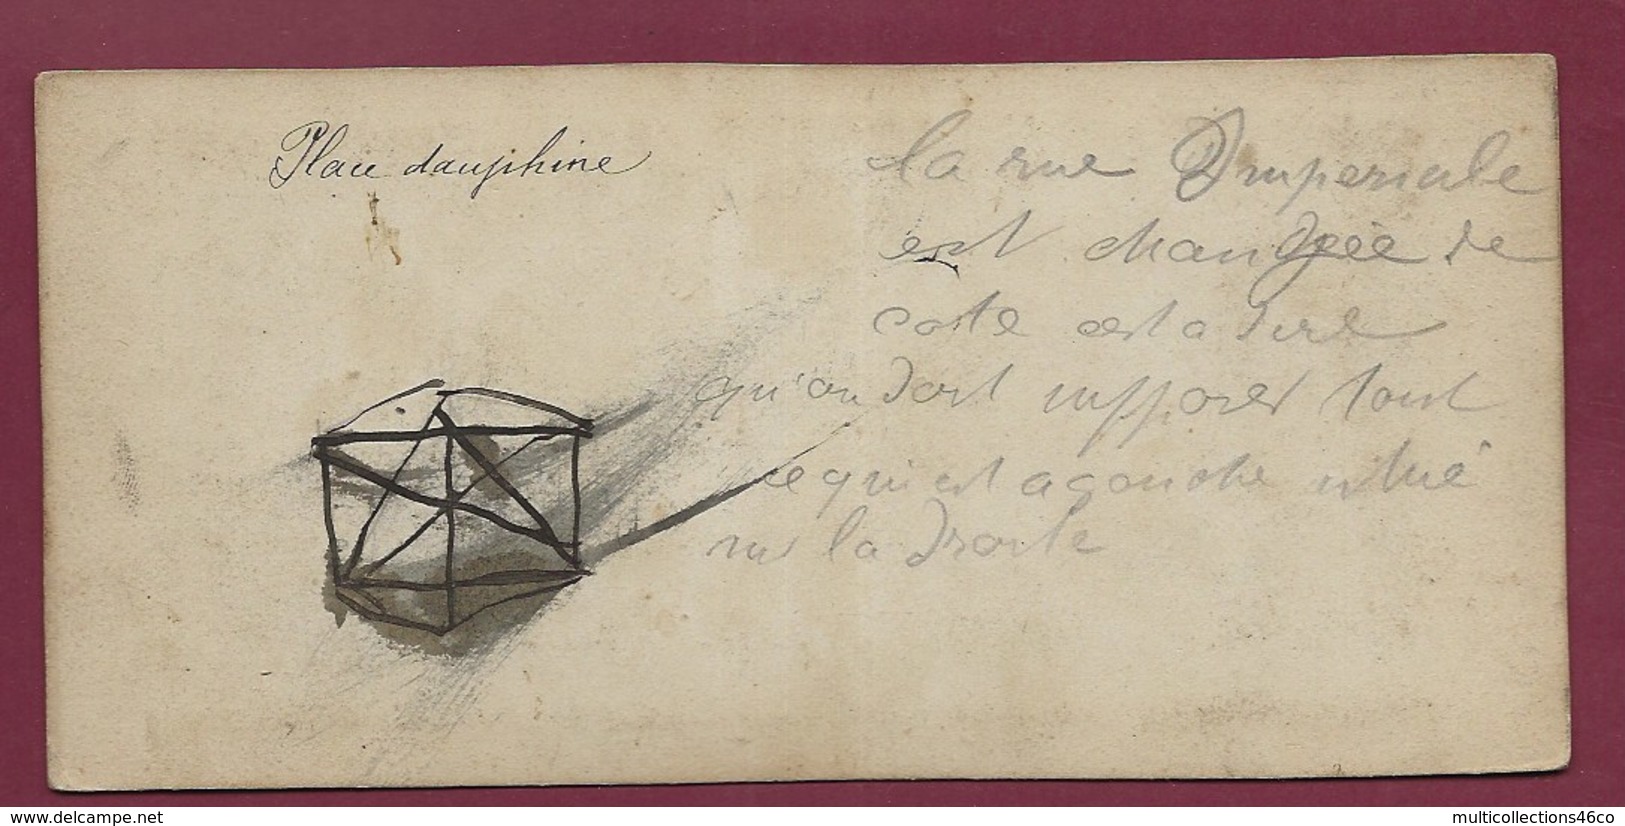 Place dauphine
la rue Imperiale
est changée de
coste cest a dire
qu'on doit supposer tout
ce qui est a gauche situé
sur la droite
delcampe.net
multicollections46co